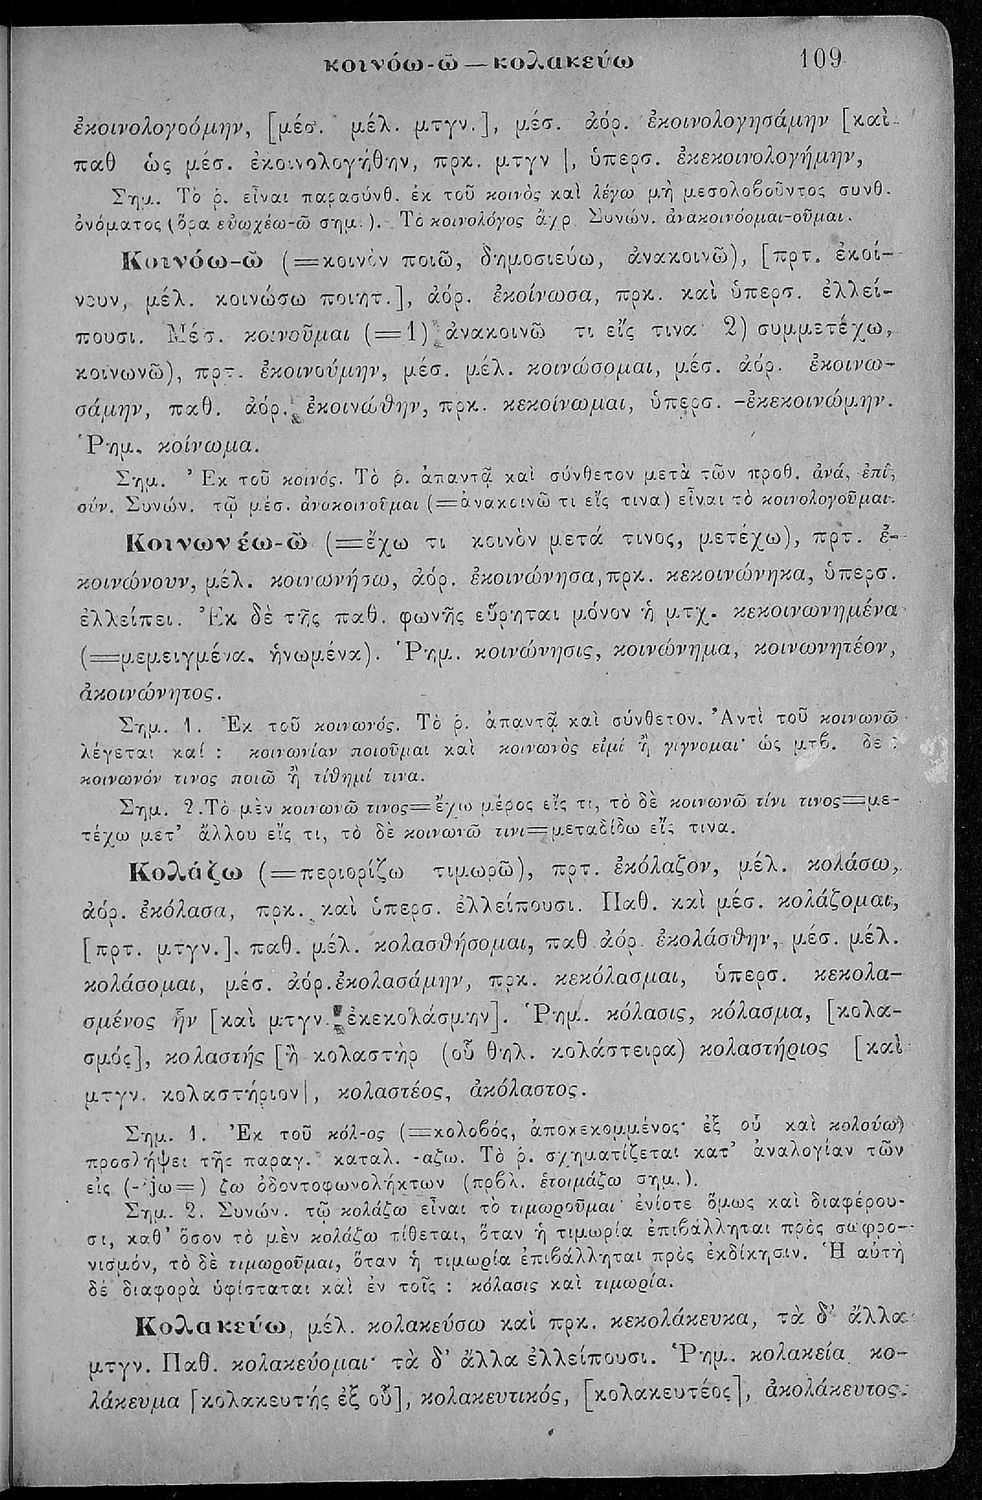 κοινόω-ῶ — κολακεύω 109
ἐκοινολογοόμην, [μέσ. μέλ. μτγν.], μέσ. ἀόρ. ἐκοινολογησάμην [καὶ
παθ ὡς μέσ. ἐκοινολογήθην, πρκ. μτγν], ὑπερσ. ἐκεκοινολογήμην,
Σημ. Τὸ ῥ. εἶναι παρασύνθ. ἐκ τοῦ κοινὸς καὶ λέγω μὴ μεσολοβοῦντος συνθ.
ὀνόματος (ὅρα εὐωχέω-ῶ σημ.). Τὸ κοινολόγος ἄχρ. Συνών. ἀνακοινόομαι-οῦμαι.
Κοινόω-ῶ (=κοινὸν ποιῶ, δημοσιεύω, ἀνακοινῶ), [πρτ. ἐκοί-
νουν, μέλ. κοινώσω ποιητ.], ἀόρ. ἐκοίνωσα, πρκ. καὶ ὑπερσ. ἐλλεί-
πουσι. Μέσ. κοινοῦμαι (=1) ἀνακοινῶ τι εἴς τινα· 2) συμμετέχω,
κοινωνῶ), πρτ. ἐκοινούμην, μέσ. μέλ. κοινώσομαι, μέσ. ἀόρ. ἐκοινω-
σάμην, παθ. ἀόρ. ἐκοινώθην, πρκ. κεκοίνωμαι, ὑπερσ. -ἐκεκοινώμην.
Ῥημ. κοίνωμα.
Σημ. Ἐκ τοῦ κοινός. Τὸ ῥ. ἀπαντᾷ καὶ σύνθετον μετὰ τῶν προθ. ἀνά, ἐπί,
σύν. Συνών. τῷ μέσ. ἀνακοινοῦμαι (=ἀνακοινῶ τι εἴς τινα) εἶναι τὸ κοινολογοῦμαι.
Κοινωνέω-ῶ (=ἔχω τι κοινὸν μετά τινος, μετέχω), πρτ. ἐ-
κοινώνουν, μέλ. κοινωνήσω, ἀόρ. ἐκοινώνησα, πρκ. κεκοινώνηκα, ὑπερσ.
ἐλλείπει. Ἐκ δὲ τῆς παθ. φωνῆς εὕρηται μόνον ἡ μτχ. κεκοινωνημένα
(=μεμειγμένα, ἡνωμένα). Ῥημ. κοινώνησις, κοινώνημα, κοινωνητέον,
ἀκοινώνητος.
Σημ. 1. Ἐκ τοῦ κοινωνός. Τὸ ῥ. ἀπαντᾷ καὶ σύνθετον. Ἀντὶ τοῦ κοινωνῶ
λέγεται καί : κοινωνίαν ποιοῦμαι καὶ κοινωνὸς εἰμί ἢ γίγνομαι· ὡς μτβ. δὲ :
κοινωνόν τινος ποιῶ ἢ τίθημί τινα.
Σημ. 2. Τὸ μὲν κοινωνῶ τινος=ἔχω μέρος εἴς τι, τὸ δὲ κοινωνῶ τίνι τινος=με-
τέχω μετ' ἄλλου εἴς τι, τὸ δὲ κοινωνῶ τινι=μεταδίδω εἴς τινα.
Κολάζω (=περιορίζω τιμωρῶ), πρτ. ἐκόλαζον, μέλ. κολάσω,
ἀόρ. ἐκόλασα, πρκ. καὶ ὑπερσ. ἐλλείπουσι. Παθ. καὶ μέσ. κολάζομαι,
[πρτ. μτγν.]. παθ. μέλ. κολασθήσομαι, παθ. ἀόρ. ἐκολάσθην, μέσ. μέλ.
κολάσομαι, μέσ. ἀόρ. ἐκολασάμην, πρκ. κεκόλασμαι, ὑπερσ. κεκολα-
σμένος ἦν [καὶ μτγν. ἐκεκολάσμην]. Ῥημ. κόλασις, κόλασμα, [κολα-
σμός], κολαστής [ἢ κολαστὴρ (οὗ θηλ. κολάστειρα) κολαστήριος [καὶ
μτγν. κολαστήριον], κολαστέος, ἀκόλαστος.
Σημ. 1. Ἐκ τοῦ κόλ-ος (=κολοβός, ἀποκεκομμένος· ἐξ οὗ καὶ κολούω)
προσλήψει τῆς παραγ. καταλ. -αζω. Τὸ ῥ. σχηματίζεται κατ' ἀναλογίαν τῶν
εἰς (-jω=) ζω ὀδοντοφωνολήκτων (πρβλ. ἑτοιμάζω σημ.).
Σημ. 2. Συνών. τῷ κολάζω εἶναι τὸ τιμωροῦμαι· ἐνίοτε ὅμως καὶ διαφέρου-
σι, καθ' ὅσον τὸ μὲν κολάζω τίθεται, ὅταν ἡ τιμωρία ἐπιβάλληται πρὸς σωφρο-
νισμόν, τὸ δὲ τιμωροῦμαι, ὅταν ἡ τιμωρία ἐπιβάλληται πρὸς ἐκδίκησιν. Ἡ αὐτὴ
δὲ διαφορὰ ὑφίσταται καὶ ἐν τοῖς : κόλασις καὶ τιμωρία.
Κολακεύω, μέλ. κολακεύσω καὶ πρκ. κεκολάκευκα, τὰ δ' ἄλλα
μτγν. Παθ. κολακεύομαι· τὰ δ' ἄλλα ἐλλείπουσι. Ῥημ. κολακεία, κο-
λάκευμα [κολακευτής ἐξ οὗ], κολακευτικός, [κολακευτέος], ἀκολάκευτος.